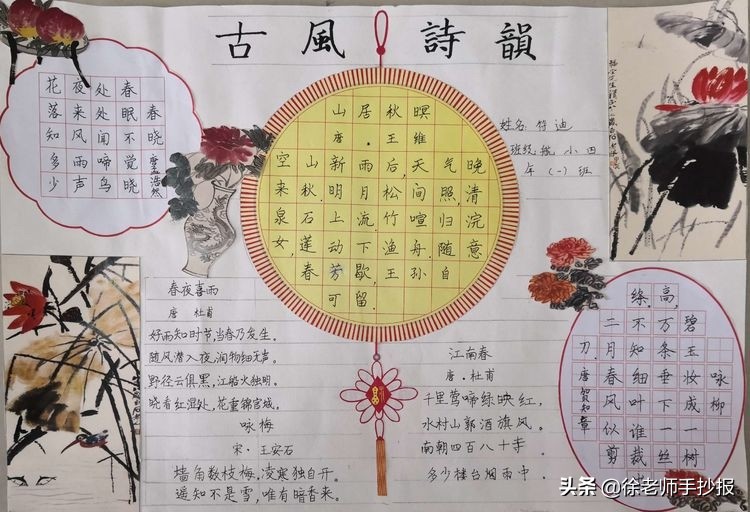 古風詩韻
春晓
唐孟浩然
春眠不觉晓
处处闻啼鸟
夜来风雨声
花落知多少
山居秋暝
唐·王维
空山新雨后,天气晚
来秋.明月松间照,清
泉石上流.竹喧归浣
女,莲动下渔舟.随意
春芳歇,王孙自
可留.
姓名:符迪
班级:航小四
年(一)班
春夜喜雨
唐 杜甫
好雨知时节,当春乃发生。
随风潜入夜,润物细无声。
野径云俱黑,江船火独明。
晓看红湿处,花重锦官城。
咏梅
宋·王安石
墙角数枝梅,凌寒独自开。
遥知不是雪,唯有暗香来。
江南春
唐·杜甫
千里莺啼绿映红,
水村山郭酒旗风。
南朝四百八十寺。
多少楼台烟雨中.
咏柳
碧玉妆成一树高,
万条垂下一丝绦,
不知细叶谁裁
二月春风似剪刀.
唐贺知章
头条 @徐老师手抄报